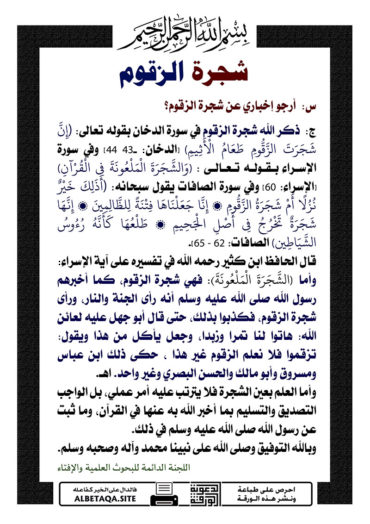 بسم الله الرحمن الرحيم
شجرة الزقوم
س: أرجو إخباري عن شجرة الزقوم؟
ج: ذكر الله شجرة الزقوم في سورة الدخان بقوله تعالى: (إِنَّ
شَجَرَتَ الزَّقُّومِ طَعَامُ الْأَثِيمِ) (الدخان: ـ43 44) وفي سورة
الإسراء بـقـولـه تـعـالـى : (وَالشَّجَرَةَ الْمَلْعُونَةَ فِي الْقُرْآنِ)
(الإسراء: 60) وفي سورة الصافات يقول سبحانه: (أَذَلِكَ خَيْرٌ
نُزُلًا أَمْ شَجَرَةُ الزَّقُّومِ ۞ إِنَّا جَعَلْنَاهَا فِتْنَةً لِلظَّالِمِينَ ۞ إِنَّهَا
شَجَرَةٌ تَخْرُجُ فِي أَصْلِ الْجَحِيمِ ۞ طَلْعُهَا كَأَنَّهُ رُءُوسُ
الشَّيَاطِينِ) الصافات: 62 - 65).
قال الحافظ ابن كثير رحمه الله في تفسيره على آية الإسراء:
وأما (الشَّجَرَةَ الْمَلْعُونَةَ): فهي شجرة الزقوم، كما أخبرهم
رسول الله صلى الله عليه وسلم أنه رأى الجنة والنار، ورأى
شجرة الزقوم، فكذبوا بذلك، حتى قال أبو جهل عليه لعائن
الله: هاتوا لنا تمرا وزبدا، وجعل يأكل من هذا ويقول:
تزقموا فلا نعلم الزقوم غير هذا ، حكى ذلك ابن عباس
ومسروق وأبو مالك والحسن البصري وغير واحد. اهـ.
وأما العلم بعين الشجرة فلا يترتب عليه أمر عملي، بل الواجب
التصديق والتسليم بما أخبر الله به عنها في القرآن، وما ثبت
عن رسول الله صلى الله عليه وسلم في ذلك.
وبالله التوفيق وصلى الله على نبينا محمد وآله وصحبه وسلم.
اللجنة الدائمة للبحوث العلمية والإفتاء
احرص على طباعة
ونشر هذه الورقة
الدعوية
الورقة
فالدال على الخير كفاعله
ALBETAQA.SITE